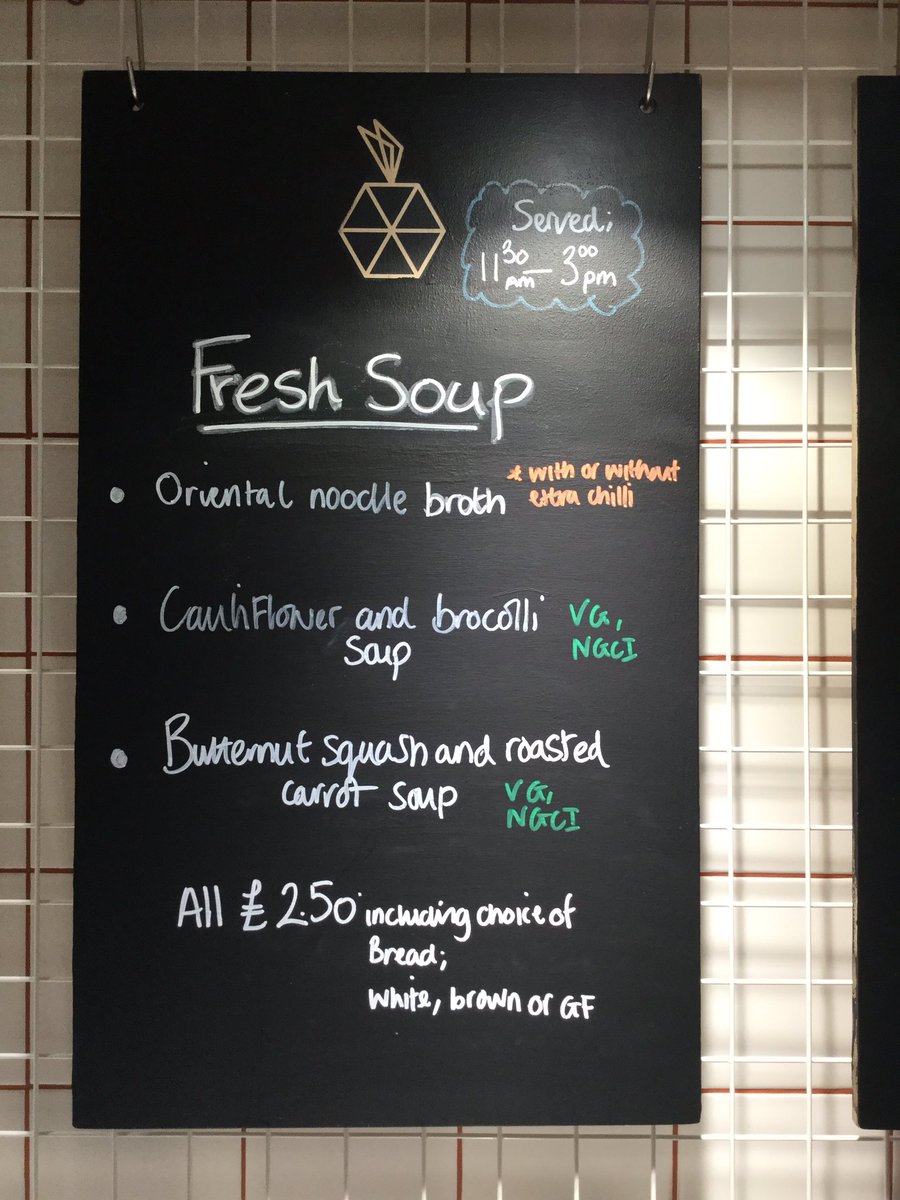 Served;
11 30 AM – 3 00 pm
Fresh Soup
• Oriental noodle broth
* with or without
extra chilli
• Cauliflower and brocolli
Soup
VG,
NGCI
• Butternut squash and roasted
carrot soup
VG,
NGCI
All £2.50 including choice of
Bread;
white, brown or GF